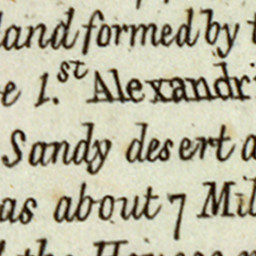 land formed by t
e 1.st Alexandri
Sandy desert a
as about 7 Mil